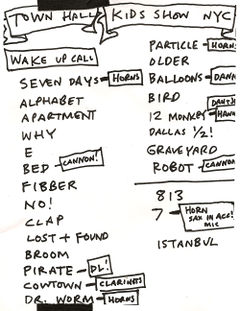 TOWN HALL
KIDS SHOW NYC
WAKE UP CALL
SEVEN DAYS - HORNS
ALPHABET
APARTMENT
WHY
E
BED - CANNON!
FIBBER
NO!
CLAP
LOST + FOUND
BROOM
PIRATE - DL!
COWTOWN - CLARINETS
DR. WORM - HORNS
PARTICLE - HORNS
OLDER
BALLOONS - DANN
BIRD
12 MONKEY
DALLAS 1/2!
GRAVEYARD
ROBOT - CANNON
813
7 - HORN
SAX IN ACC!
MIC
ISTANBUL